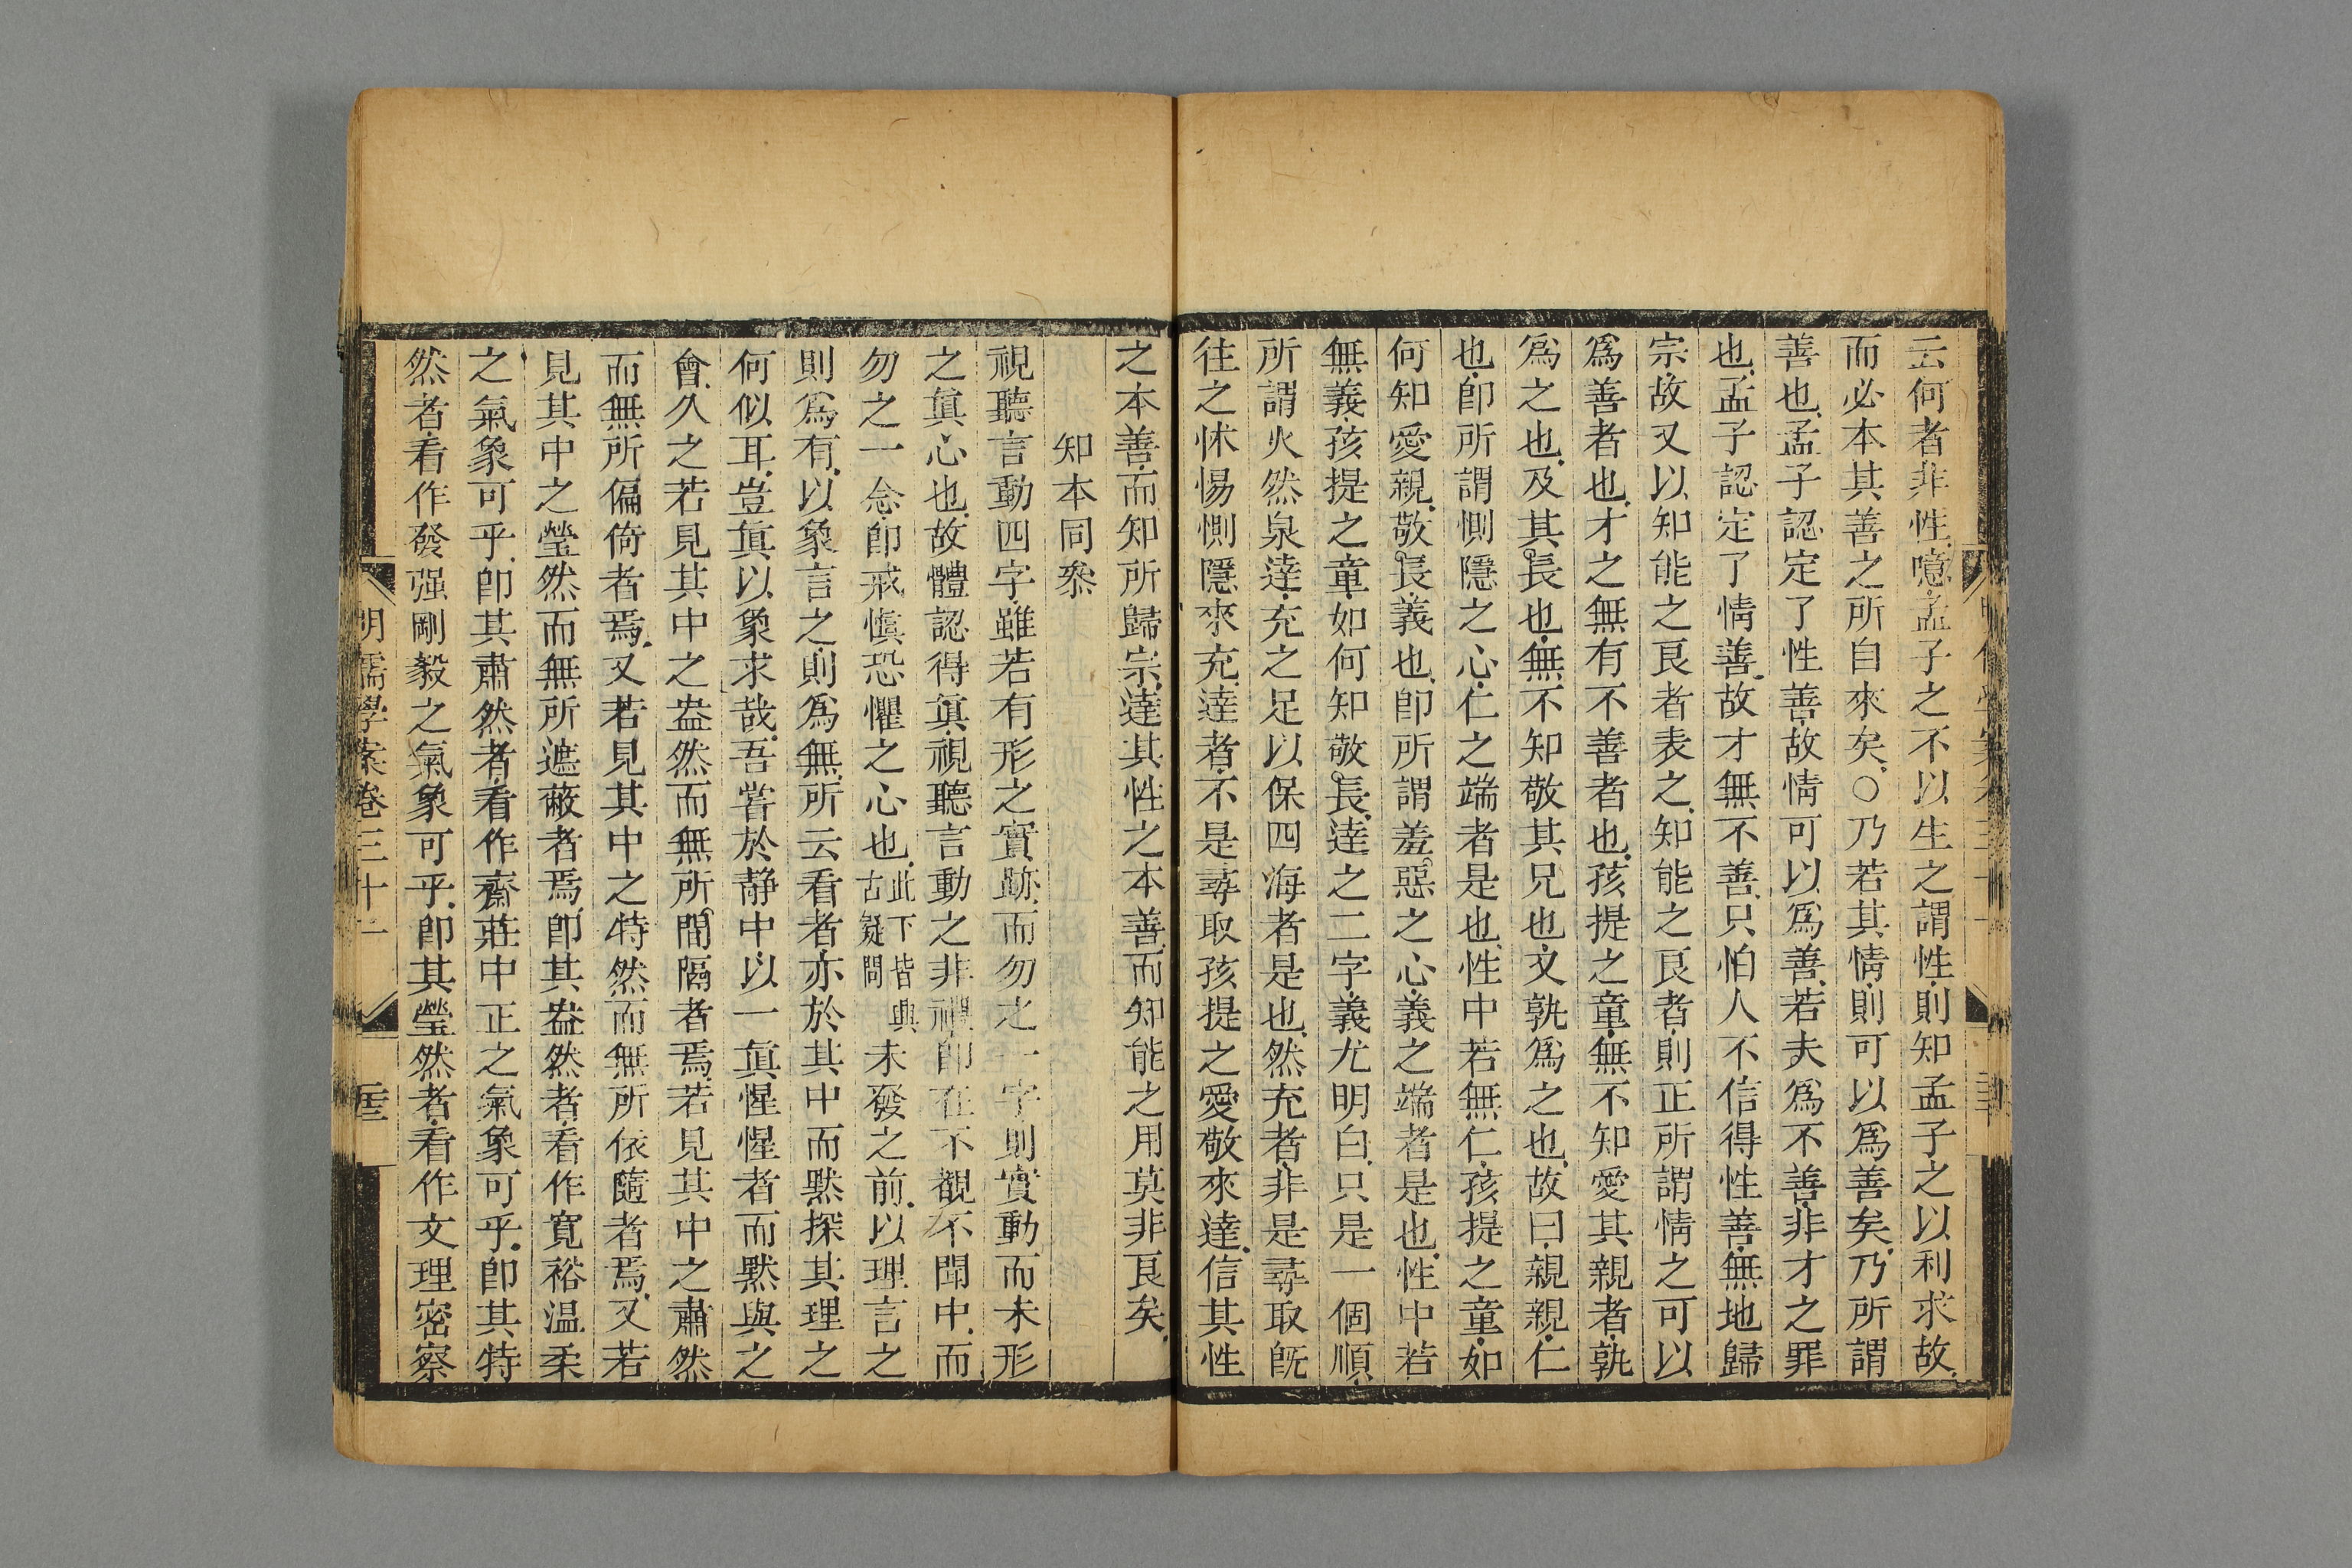 云何者非性噫孟子之不以生之謂性則知孟子之以利求故
而必本其善之所自來矣○乃若其情則可以爲善矣乃所謂
善也孟子認定了性善故情可以爲善若夫爲不善非才之罪
也孟子認定了情善故才無不善只怕人不信得性善無地歸
宗故又以知能之良者表之知能之良者則正所謂情之可以
爲善者也才之無有不善者也孩提之童無不知愛其親者孰
爲之也及其長也無不知敬其兄也又孰爲之也故曰親親仁
也卽所謂惻隱之心仁之端者是也性中若無仁孩提之童如
何知愛親敬長義也卽所謂羞惡之心義之端者是也性中若
無義孩提之童如何知敬長達之二字義尤明白只是一個順
所謂火然泉達充之足以保四海者是也然充者非是尋取旣
往之怵惕惻隱來充達者不是尋取孩提之愛敬來達信其性
之本善而知所歸宗達其性之本善而知能之用莫非良矣
知本同叅
視聽言動四字雖若有形之實跡而勿之一字則實動而未形
之眞心也故體認得眞視聽言動之非禮卽在不覩不聞中而
勿之一念卽戒愼恐懼之心也此下皆與古疑問未發之前以理言之
則爲有以象言之則爲無所云看者亦於其中而默探其理之
何似耳豈眞以象求哉吾嘗於靜中以一眞惺惺者而默與之
會久之若見其中之盎然而無所間隔者焉若見其中之肅然
而無所偏倚者焉又若見其中之特然而無所依隨者焉又若
見其中之瑩然而無所遮蔽者焉卽其盎然者看作寬裕温柔
之氣象可乎卽其肅然者看作齋莊中正之氣象可乎卽其特
然者看作發强剛毅之氣象可乎卽其瑩然者看作文理密察
明儒學案卷三十一